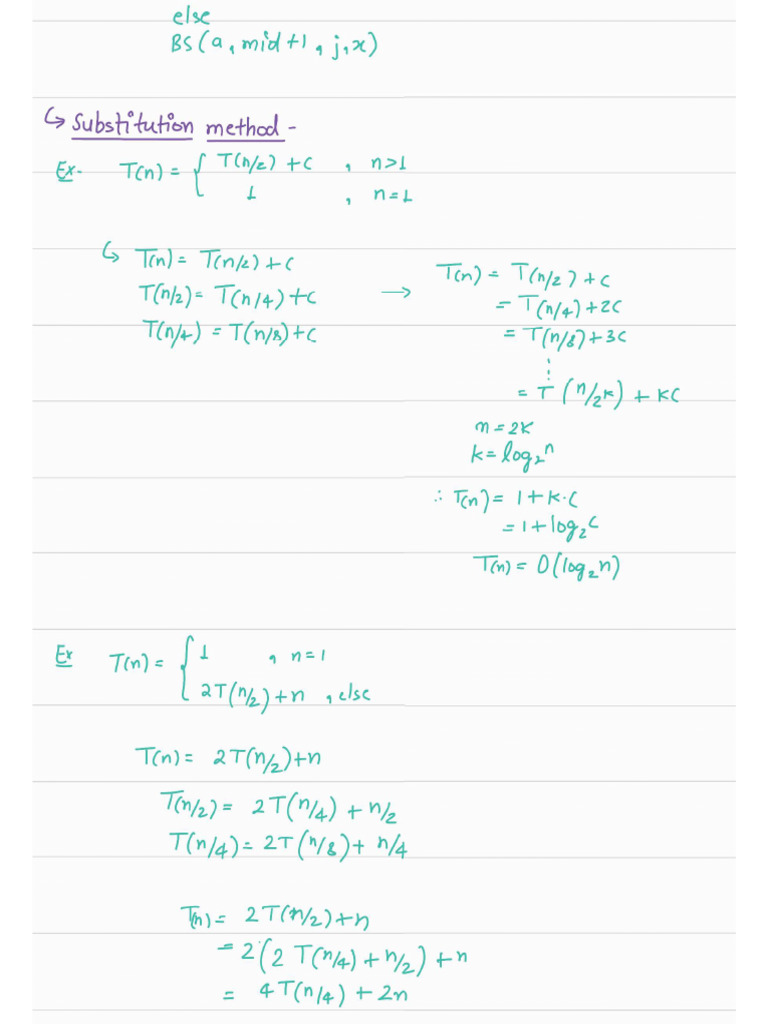 else
BS(a, mid+1, j, x)
↳ Substitution method -
Ex- T(n) = { T(n/2) + c , n>1
1 , n=1
↳ T(n) = T(n/2) + c
T(n/2) = T(n/4) + c
T(n/4) = T(n/8) + c
→ T(n) = T(n/2) + c
= T(n/4) + 2c
= T(n/8) + 3c
⋮
= T(n/2k) + kc
n = 2k
k = log₂n
∴ T(n) = 1 + k·c
= 1 + log₂c
T(n) = O(log₂n)
Ex T(n) = { 1 , n=1
2T(n/2) + n , else
T(n) = 2T(n/2) + n
T(n/2) = 2T(n/4) + n/2
T(n/4) = 2T(n/8) + n/4
T(n) = 2T(n/2) + n
= 2(2T(n/4) + n/2) + n
= 4T(n/4) + 2n